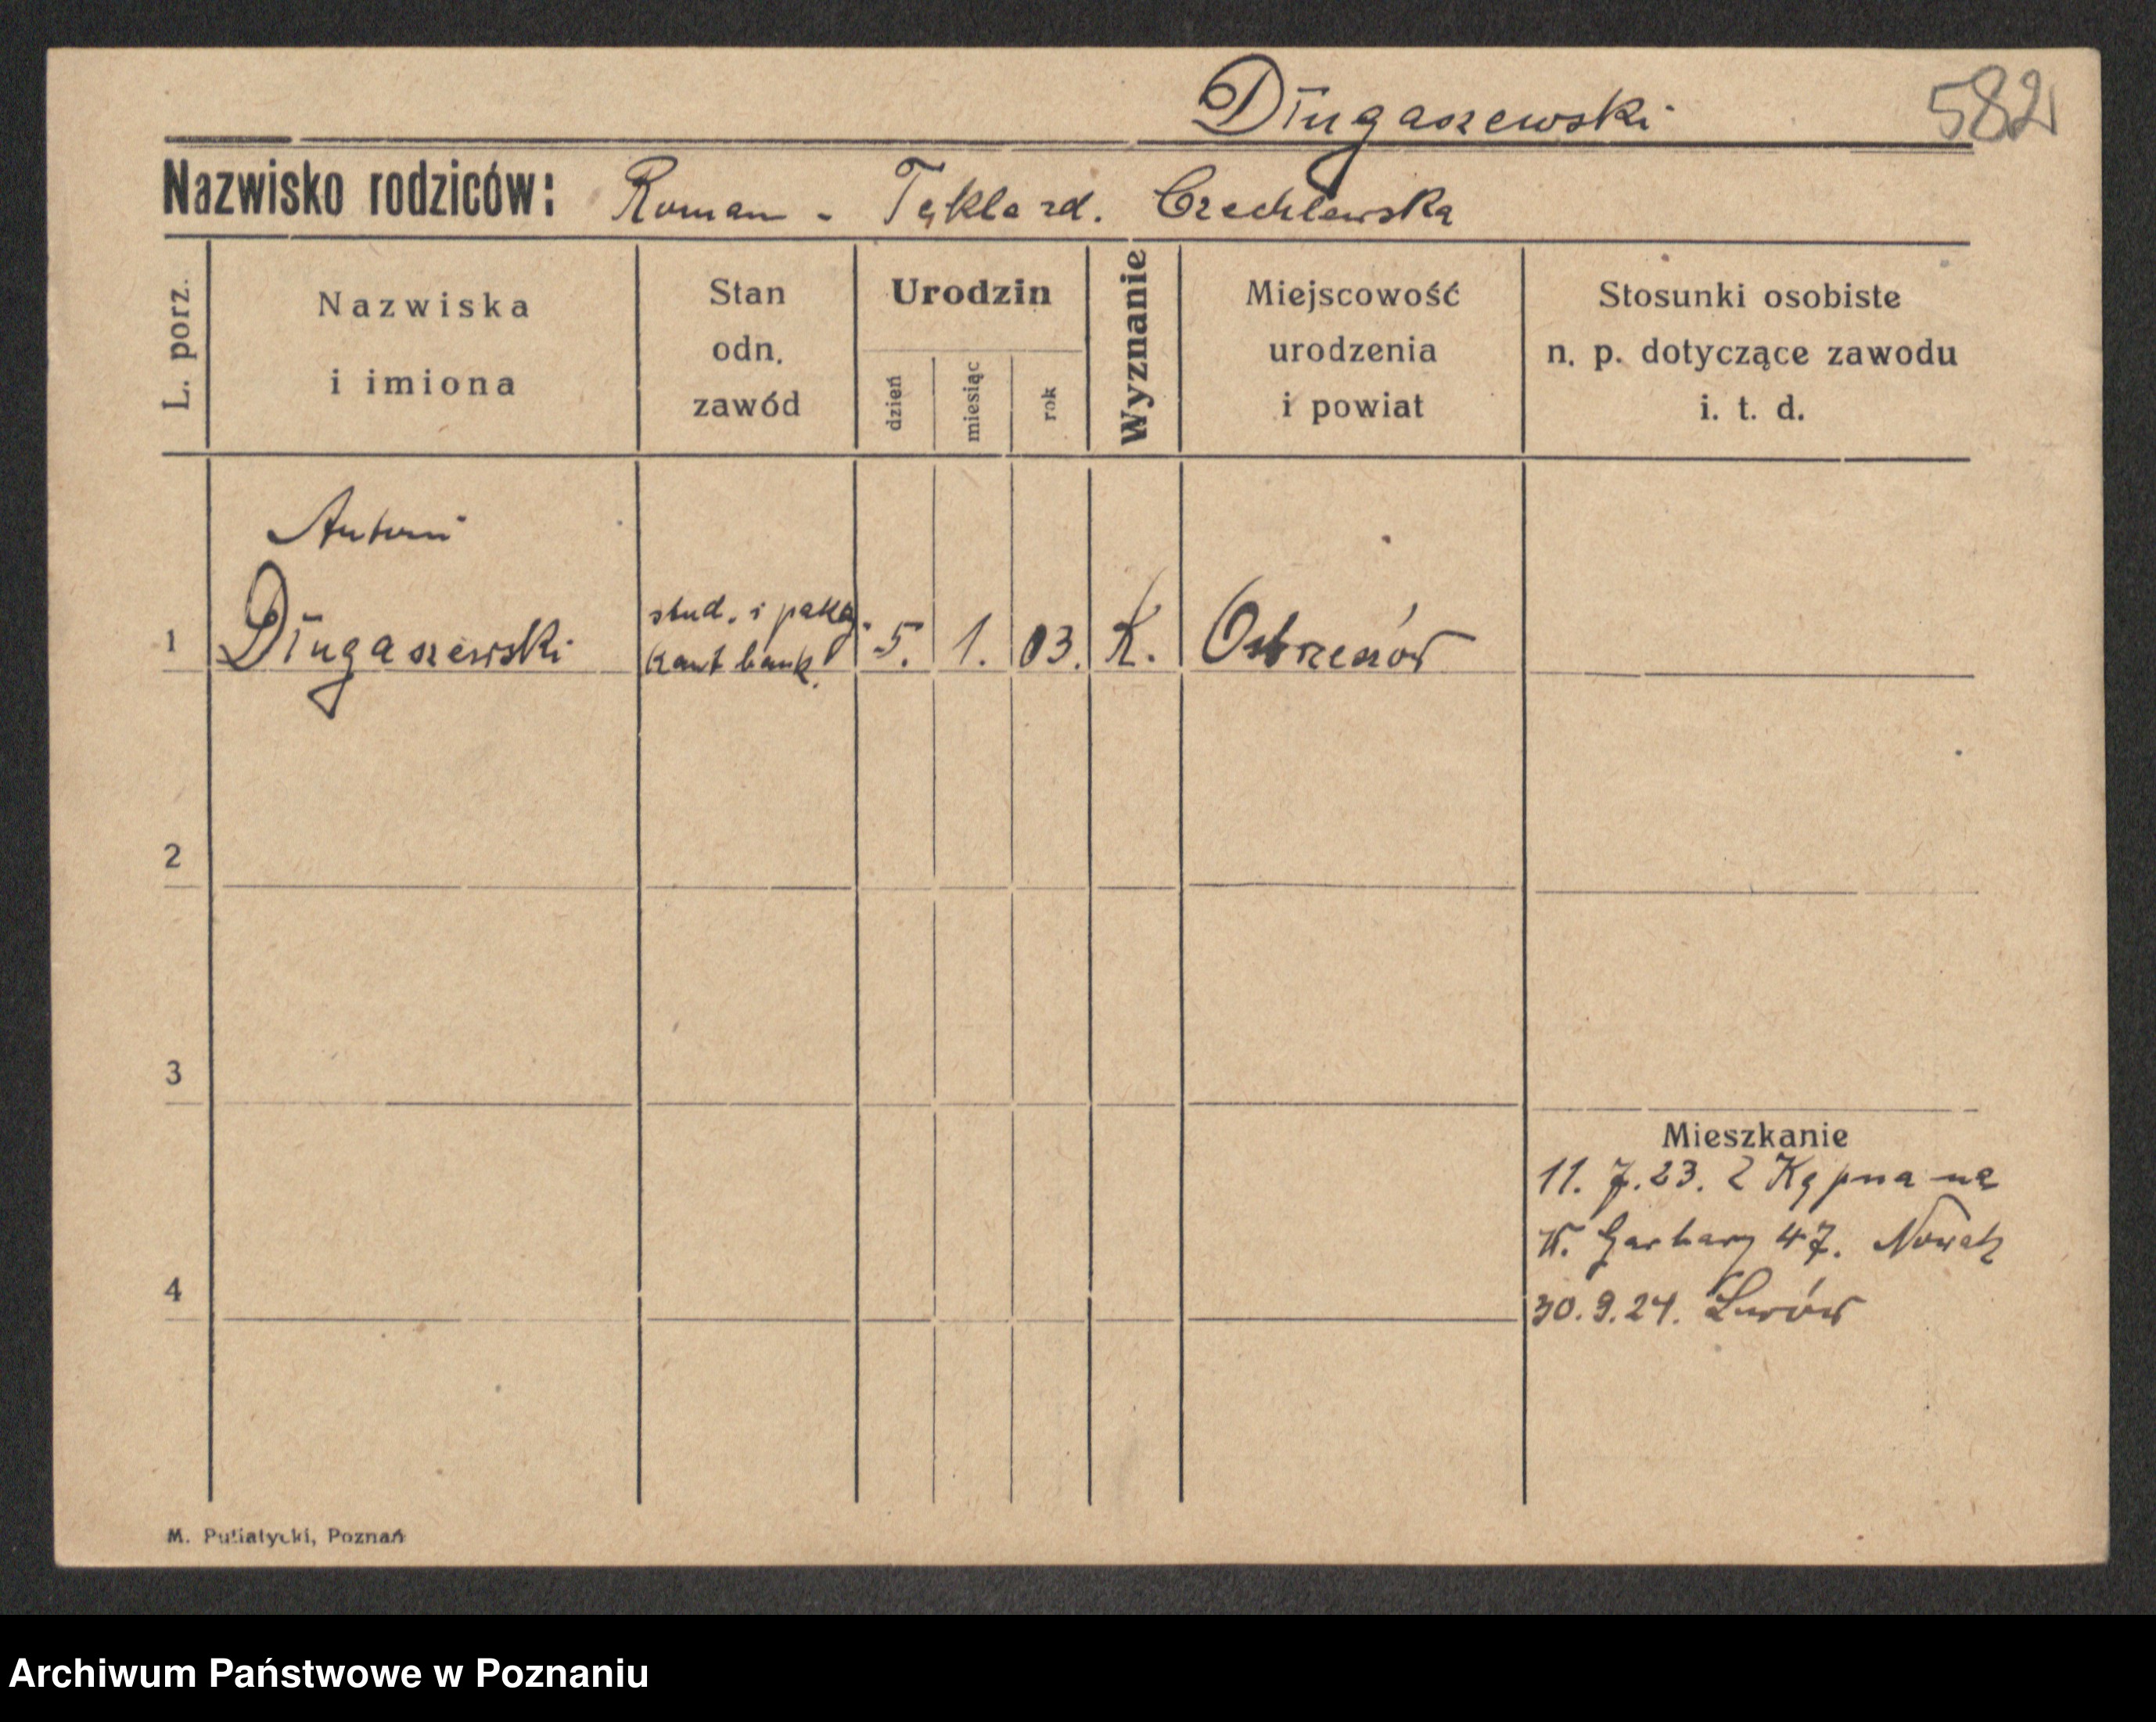 Długaszewski
582
Nazwisko rodziców: Roman - Tekla zd. Czechlewska
L. porz.
Nazwiska
i imiona
Stan
odn.
zawód
Urodzin
dzień
miesiąc
rok
Wyznanie
Miejscowość
urodzenia
i powiat
Stosunki osobiste
n. p. dotyczące zawodu
i. t. d.
Antoni
1 Długaszewski
stud. i
bank.
5. 1. 03. K. Ostrzeszów
2
3
4
Mieszkanie
11. 7. 23. Z Kępna na
W. Garbary 47. Nowak
30. 9. 24. Lwów
M. Putiatycki, Poznań
Archiwum Państwowe w Poznaniu